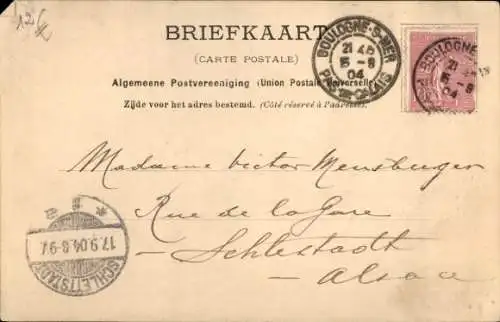 12€
BRIEFKAART
(CARTE POSTALE)
Algemeene Postvereeniging (Union Postale Universelle)
Zijde voor het adres bestemd. (Côté réservé à l'adresse)
BOULOGNE-S-MER
21
5-9
04
PAS-DE-CALAIS
BOULOGNE
21
5-9
04
Madame Victor Mensburger
Rue de la Gare
Schlestadt
Alsace
SCHLETTSTADT
17.9.04.8-9V.